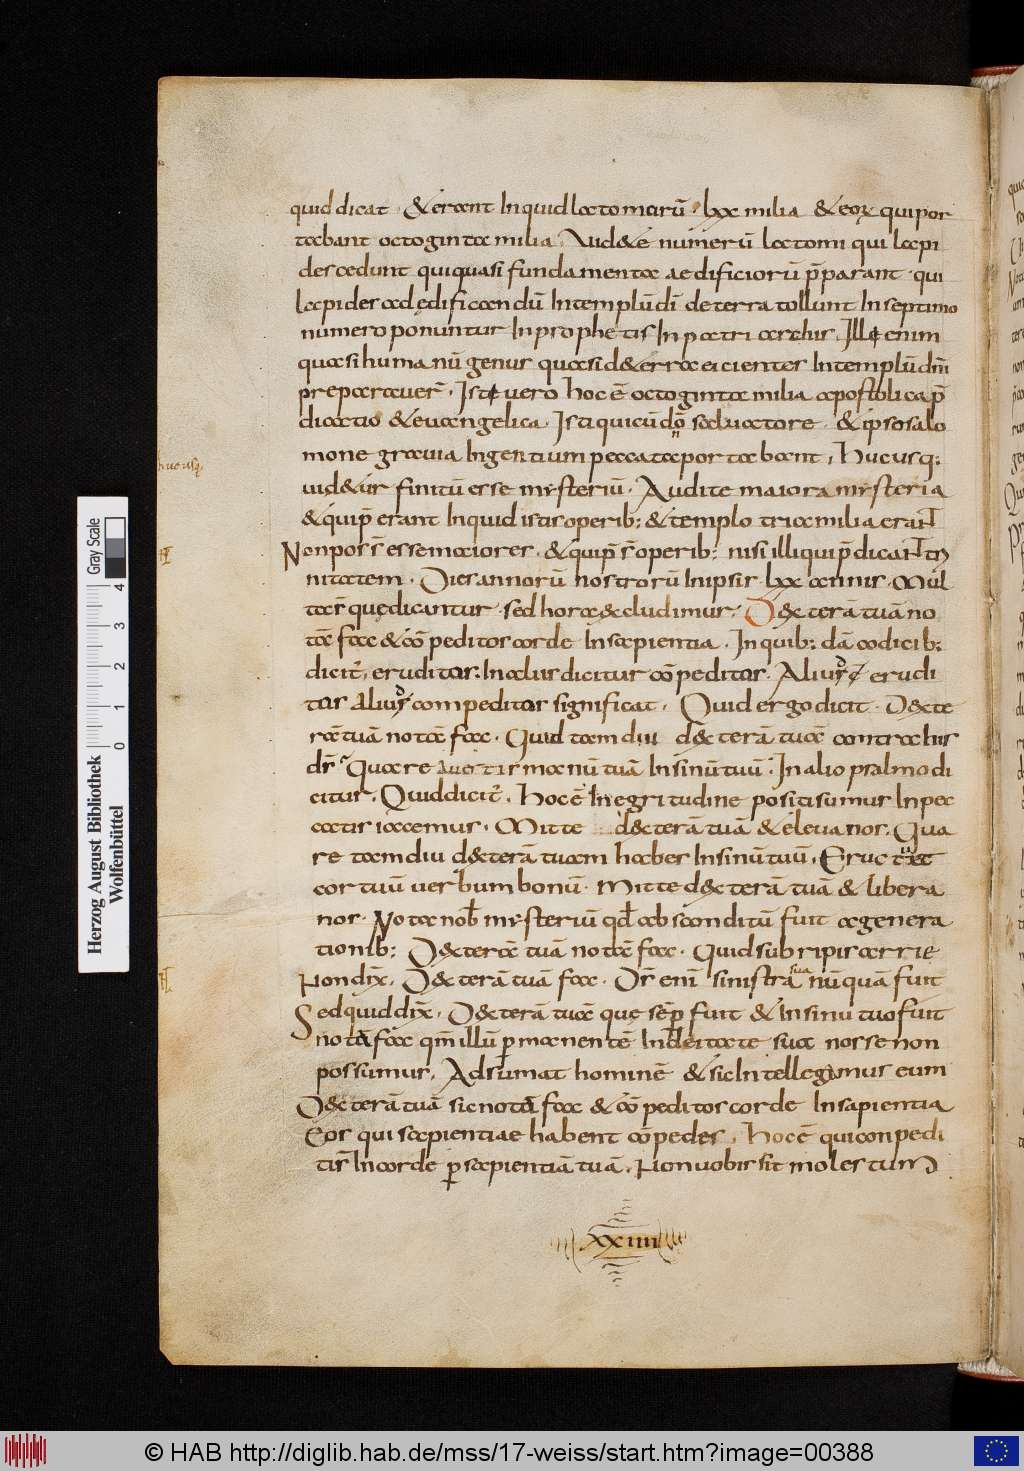 quid dicat · & erant Inquid lactomiarū · lxx milia & eoꝝ qui por
tabant octoginta milia. Uid&e numerū lactomi qui lapi
des cedunt qui quasi fundamenta aedificiorū p̄parant · qui
lapides ad ędificandū In templū dī de terra tollunt In septimo
numero ponuntur In prophetis In patriarchis. Illę enim
quasi humanū genus quasi d& erra eicientes In templū dnī
preparauer̄. Istę vero hoc ē octoginta milia apostolica p̄
dicatio & euangelica. Isti qui cū dō saluatore & ipso salo
mone grauia In gentium peccata portabant, Hucusq:
uid&ur finitū esse mysteriū. Audite maiora mysteria
& qui p̄erant Inquid istis operib: & templo tria milia erant
Non pos̄s esse maiores · & qui p̄s̄ operib: nisi illi qui p̄dicant tri
nitatem · Dies annorū nostrorū In ipsis · lxx annis · Mul
ta s̄ quę dicantur · sed hora excludimur, Dexterā tuā no
tā fac & cōpeditos corde In sapientia. In quib: dā codicib:
dicit̄, eruditos: In aliis dicitur cōpeditos. Alius erudi
tos alius compeditos significat, Quid ergo dicit · Dexte
rā tuā notā fac · Quid tam diu dexterā tuā contra his
dr̄ Quare Auertis manū tuā In sinū tuū · In alio psalmo di
citur, Quid dicit̄, Hoc ē In egritudine positi sumus In pec
catis iacemus, Mitte dexterā tuā & eleua nos. Qua
re tam diu dexterā tuam habes In sinū tuū, Eructuet
cor tuū uerbum bonū · Mitte dexterā tuā & libera
nos · Nota nob̄ mysteriū qd̄ absconditū fuit a genera
tionib: Dexterā tuā notā fac · Quid subripis arrie
Non dix̄, Dexterā tuā fac · Dr̄ enī sinistrā sua nūquā fuit
Sed quid dix̄, Dexterā tuā que sēp fuit & In sinu tuo fuit
notā fac qm̄ illū ꝑmanentē In deitate sua nosse non
possumus, Adsumat hominē & sic Intellegimus eum
Dexterā tuā sic notā fac & cōpeditos corde In sapientia
Eos qui sapientiae habent cōpedes, Hoc ē qui conpedi
tis̄ In corde ꝑ sapientiā tuā, Non uobis sit molestum
XXIIII
Herzog August Bibliothek
Wolfenbüttel
Gray Scale
0 1 2 3 4
© HAB http://diglib.hab.de/mss/17-weiss/start.htm?image=00388